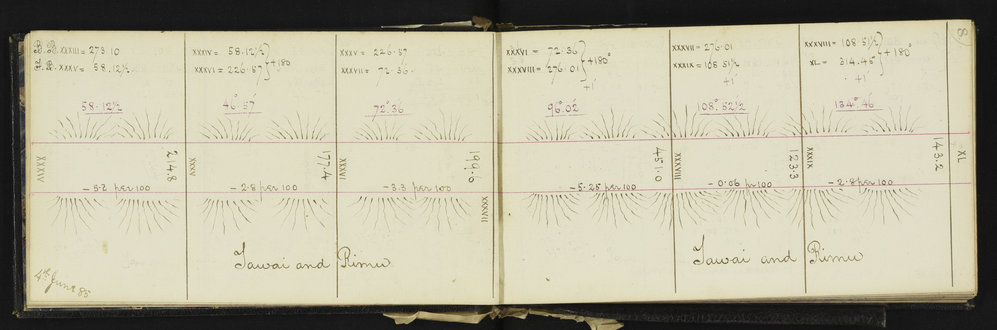 B.B. XXXIII = 273.10
F.B. XXXV = 58.12½
58.12½
XXXIV = 58.12½
XXXVI = 226.57
+180
46°.57'
XXXV = 226.57
XXXVII = 72.36
72°.36
XXXVI = 72.36
XXXVIII = 276.01
+180°
+1'
96°.02'
XXXVII = 276.01
XXXIX = 108.51½
+1'
108°.52½
XXXVIII = 108.51½
XL = 314.45°
+180°
+1'
134°.46
8
XXXIV
214.8
XXXV
177.4
XXXVI
199.6
XXXVII
451.0
XXXVIII
123.3
XXXIX
143.2
XL
-5.2 per 100
-2.8 per 100
-3.3 per 100
-5.25 per 100
-0.06 pr 100
-2.8 per 100
Tawai and Rimu
Tawai and Rimu
4th June 85